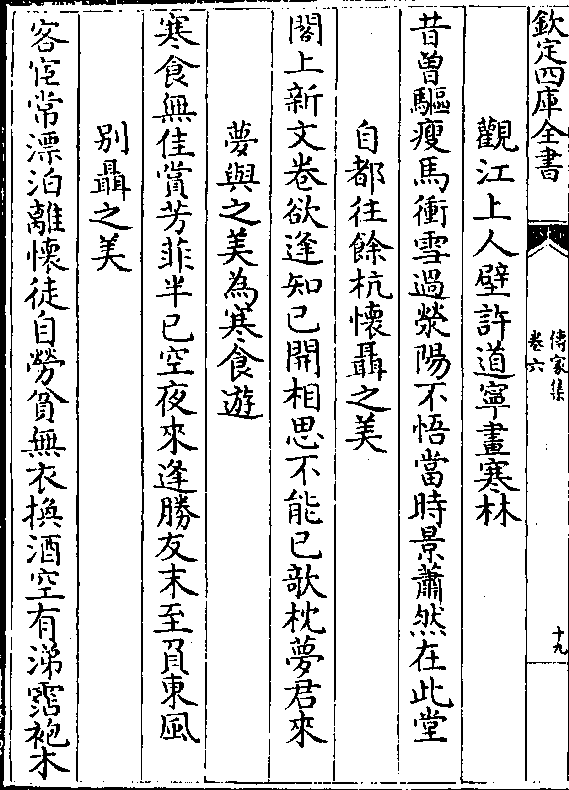 欽定四庫全書
傳家集
卷六
十九
觀江上人壁許道寧畫寒林
昔曾驅瘦馬衝雪過滎陽不悟當時景蕭然在此堂
自都往餘杭懷聶之美
閣上新文卷欲逢知已開相思不能已欹枕夢君來
夢與之美為寒食遊
寒食無佳賞芳菲半已空夜來逢勝友末至負東風
別聶之美
客宦常漂泊離懷徒自勞貧無衣換酒空有涕霑袍木